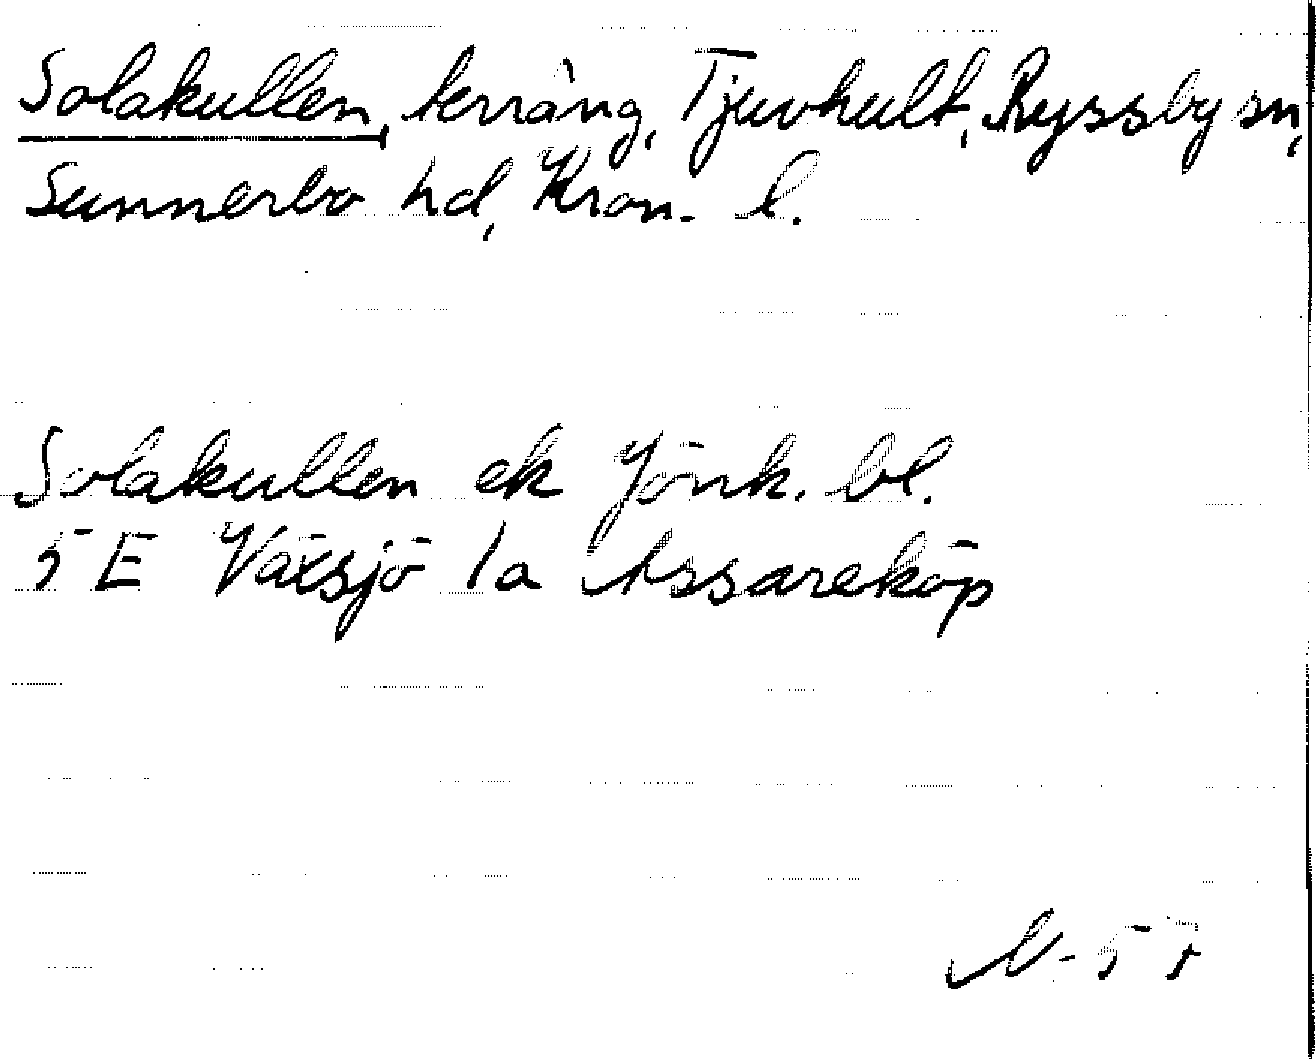 Solakullen, terräng, Tjuvhult, Ryssby sn,
Sunnerbo hd, Kron. l.
Solakullen ek Jönk. bl.
5 E Växsjö 1a Assareköp